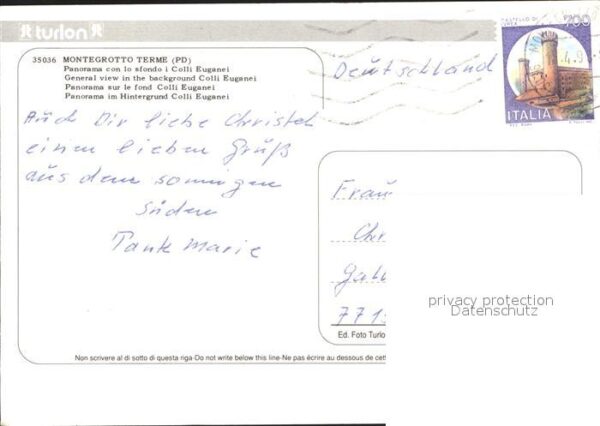 turlon
35036 MONTEGROTTO TERME (PD)
Panorama con lo sfondo i Colli Euganei
General view in the background Colli Euganei
Panorama sur le fond Colli Euganei
Panorama im Hintergrund Colli Euganei
Deutschland
CASTELLO DI IVREA 700
ITALIA
Auch Dir liebe Christel
einen lieben Gruß
aus dem sonnigen
Süden
Tante Marie
Frau
Chr
Gab
771
privacy protection
Datenschutz
Ed. Foto Turlo
Non scrivere al di sotto di questa riga-Do not write below this line-Ne pas écrire au dessous de cett